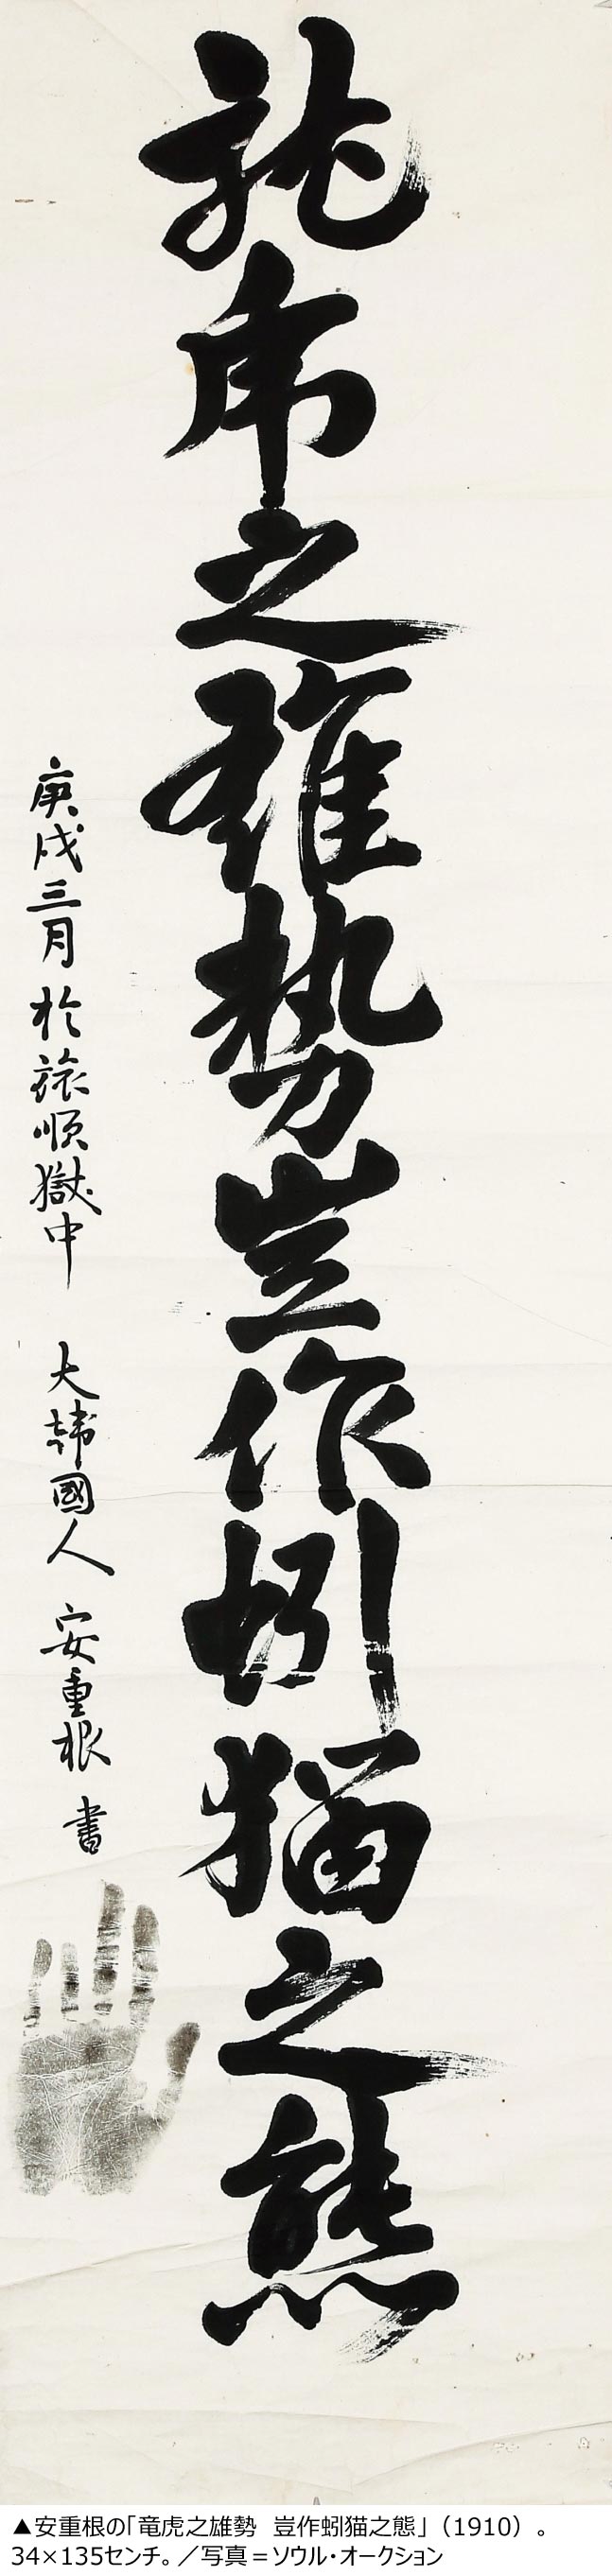 龍虎之雄勢豈作蚓猫之態
庚戌三月 於旅順獄中 大韓國人 安重根 書
▲安重根の「竜虎之雄勢 豈作蚓猫之態」（1910）。
34×135センチ。／写真＝ソウル・オークション